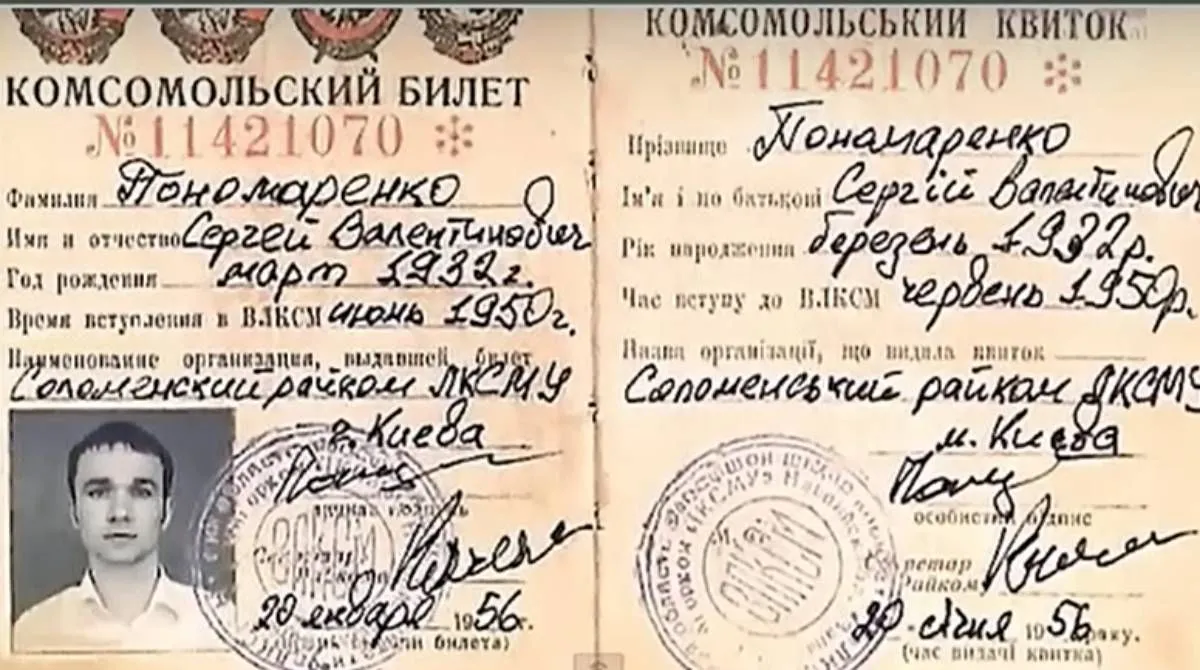 КОМСОМОЛЬСКИЙ БИЛЕТ
№11421070
Фамилия Пономаренко
Имя и отчество Сергей Валентинович
Год рождения март 1932 г.
Время вступления в ВЛКСМ июнь 1950 г.
Наименование организации, выдавшей билет
Соломенский райком ЛКСМУ
г. Киева
20 января 1956 г.
билета)
КОМСОМОЛЬСЬКИЙ КВИТОК
№11421070
Прізвище Пономаренко
Ім'я і по батькові Сергій Валентинович
Рік народження березень 1932 р.
Час вступу до ВЛКСМ червень 1950 р.
Назва організації, що видала квиток
Соломенський райком ЛКСМУ
м. Києва
20 січня 1956 року.
(час видачі квитка)